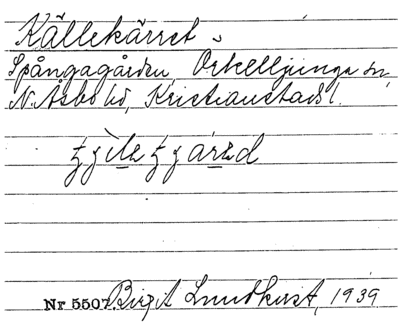 Källekärret
Spångagården, Örkelljunga sn,
N. Åsbo hd, Kristianstads l.
Nr 5507. Birgit Lundkvist, 1939